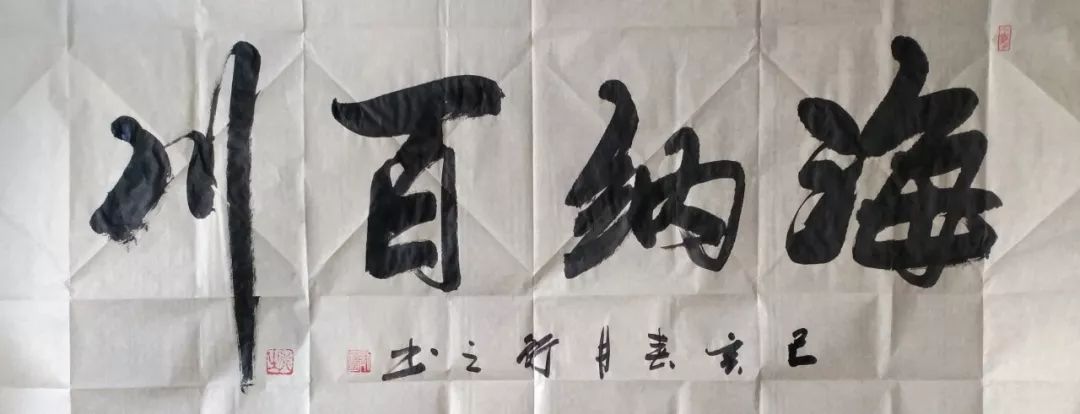 海纳百川
己亥春月行之书